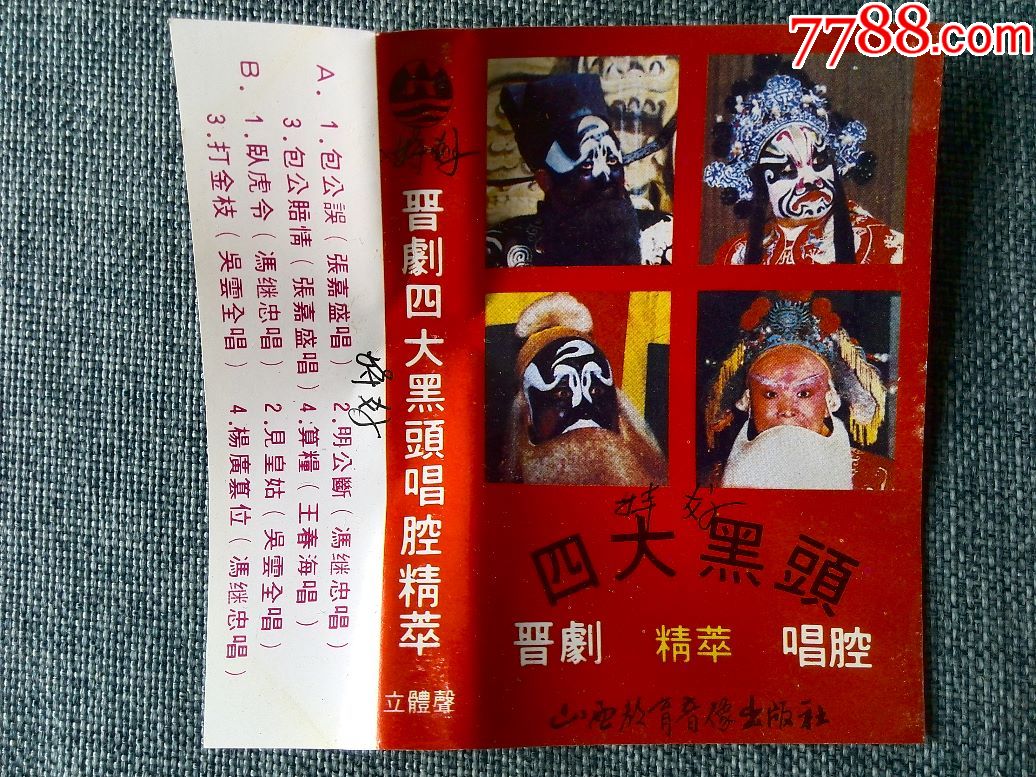 7788.com
A. 1.包公誤（張嘉盛唱） 2.明公斷（馮继忠唱）
3.包公賠情（張嘉盛唱） 4.算糧（王春海唱）
B. 1.臥虎令（馮继忠唱） 2.見皇姑（吳雲全唱）
3.打金枝（吳雲全唱） 4.楊廣篡位（馮继忠唱）
晋劇四大黑頭唱腔精萃
立體聲
四大黑頭
晋劇 精萃 唱腔
山西教育音像出版社